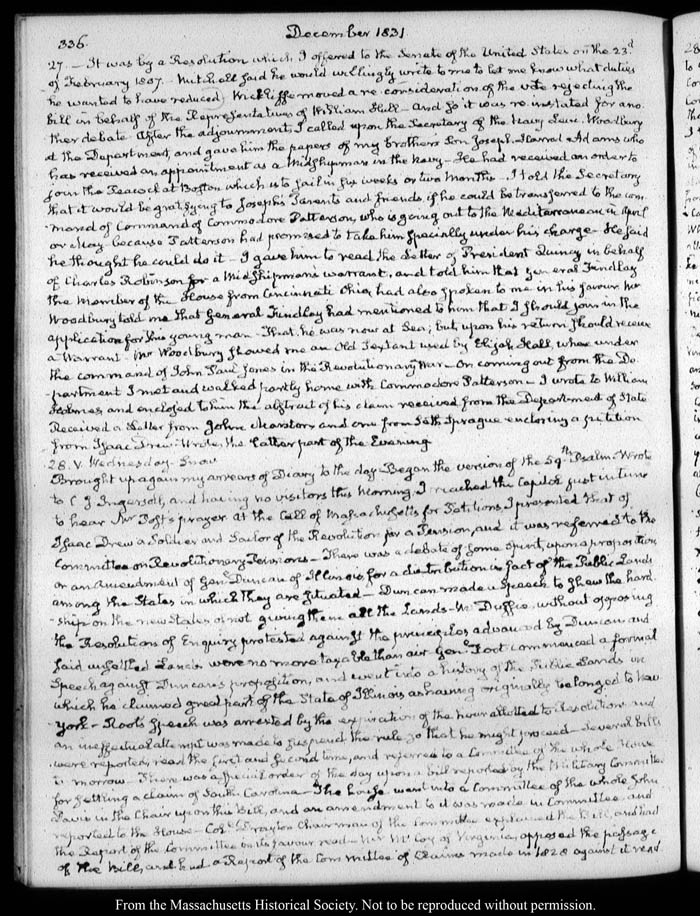 336.
December 1831.
27. — It was by a Resolution which I offered to the Senate of the United States on the 23d
of February 1807. — Mitchell said he would willingly write to me to let me know what duties
he wanted to have reduced. Wickliffe moved a re-consideration of the vote rejecting the
bill in behalf of the Representatives of William Hull — And so it was re-instated for ano-
ther debate. After the adjournment, I called upon the Secretary of the Navy Levi Woodbury
at the Department, and gave him the papers of my brothers Son Joseph Harrod Adams who
has received an appointment as a Midshipman in the Navy — He had received an order to
join the Peacock at Boston which is to sail in six weeks or two months. I told the Secretary
that it would be gratifying to Joseph's Parents and friends, if he could be transferred to the com-
mand of Command of Commodore Patterson, who is going out to the Mediterranean in April
or May. because Patterson had promised to take him specially under his charge — He said
he thought he could do it — I gave him to read the Letter of President Quincy in behalf
of Charles Robinson for a Midshipman's warrant, and told him that General Findlay
the Member of the House from Cincinnati Ohio, had also spoken to me in his favour. Mr
Woodbury told me that General Findlay had mentioned to him that I should join in the
application for this young man — That he was now at Sea; but upon his return should receive
a Warrant. Mr Woodbury showed me an Old Sextant used by Elijah Hall, when under
the command of John Paul Jones in the Revolutionary War — On coming out from the De-
partment I met and walked partly home with Commodore Patterson — I wrote to William
and enclosed to him the abstract of his claim received from the Department of State
Received a Letter from John Marston and one from Seth Sprague enclosing a petition
from Isaac Drew. Wrote, the latter part of the Evening
28. V. Wednesday. Snow
Brought up again my arrears of Diary to the day. Began the version of the 59th Psalm. Wrote
to C J Ingersoll, and having no visitors this Morning, I reached the Capitol just in time
to hear Mr Post's prayer. At the Call of Massachusetts for Petitions, I presented that of
Isaac Drew a Soldier and Sailor of the Revolution for a Pension, and it was referred to the
Committee on Revolutionary Pensions — There was a debate of some spirit, upon a proposition
or an amendment of Genl. Duncan of Illinois, for a distribution in fact of the Public Lands
among the States in which they are situated — Duncan made a Speech to shew the hard-
ship on the new States of not giving them all the Lands — McDuffie, without opposing
the Resolution of Enquiry protested against the principles advanced by Duncan and
said unsettled Lands were no more taxable than air. Genl. Root commenced a formal
Speech against Duncan's proposition, and went into a history of the Public Lands in
which he claimed great part of the State of Illinois as having originally belonged to New
York — Root's Speech was arrested by the expiration of the hour allotted to Resolutions and
an ineffectual attempt was made to suspend the rule so that he might proceed — Several bills
were reported, read the first and second time, and referred to a Committee of the whole House
to morrow. There was a special order of the day upon a bill reported by the Military Committee
for settling a claim of South Carolina — The House went into a Committee of the whole John
Davis in the Chair upon this Bill, and an amendment to it was made in Committee, and
reported to the House — Coll. Drayton Chairman of the Committee explained the Bill, and had
the Report of the Committee in its favour read — Mr McCoy of Virginia, opposed the passage
of the Bill, and had a Report of the Committee of Claims made in 1828 against it read
From the Massachusetts Historical Society. Not to be reproduced without permission.